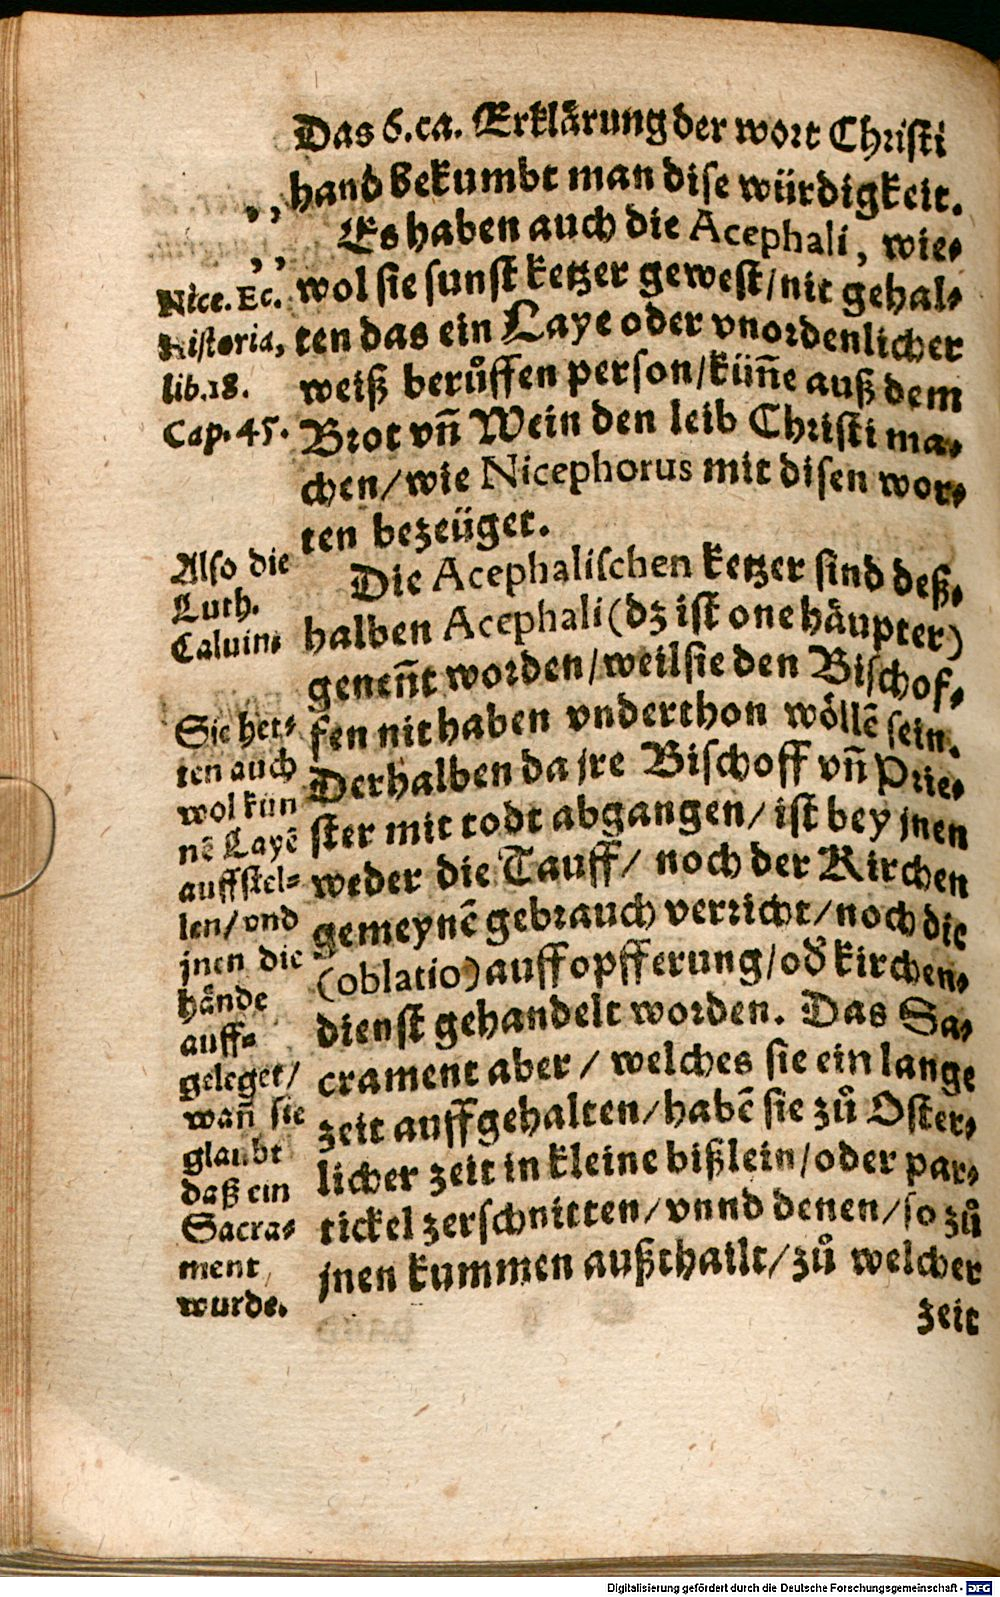 Das 6. ca. Erklärung der wort Christi
,, hand bekumbt man dise würdigkeit.
,, Es haben auch die Acephali, wie-
wol sie sunst ketzer gewest/nit gehal-
ten das ein Laye oder vnordenlicher
weiß berůffen person/küñe auß dem
Brot vñ Wein den leib Christi ma-
chen/wie Nicephorus mit disen wor-
ten bezeüget.
Nice. Ec.
Historia,
lib.18.
Cap. 45.
Die Acephalischen ketzer sind deß-
halben Acephali (dz ist one häupter)
geneñt worden/weil sie den Bischof-
fen nit haben vnderthon wöllē sein.
Derhalben da jre Bischoff vñ Prie-
ster mit todt abgangen/ ist bey jnen
weder die Tauff/ noch der Kirchen
gemeynē gebrauch verricht/noch die
(oblatio) auffopfferung/od̕ kirchen-
dienst gehandelt worden. Das Sa-
crament aber / welches sie ein lange
zeit auffgehalten/habē sie zů Oster-
licher zeit in kleine bißlein/oder par-
tickel zerschnitten/vnnd denen/so zů
jnen kummen außthailt/zů welcher
zeit
Also die
Luth.
Caluin-
Sie het-
ten auch
wol kün
nē Layē
auffstel-
len/vnd
jnen die
hände
auff-
geleget/
wañ sie
glaubt
daß ein
Sacra-
ment
wurde.
Digitalisierung gefördert durch die Deutsche Forschungsgemeinschaft - DFG